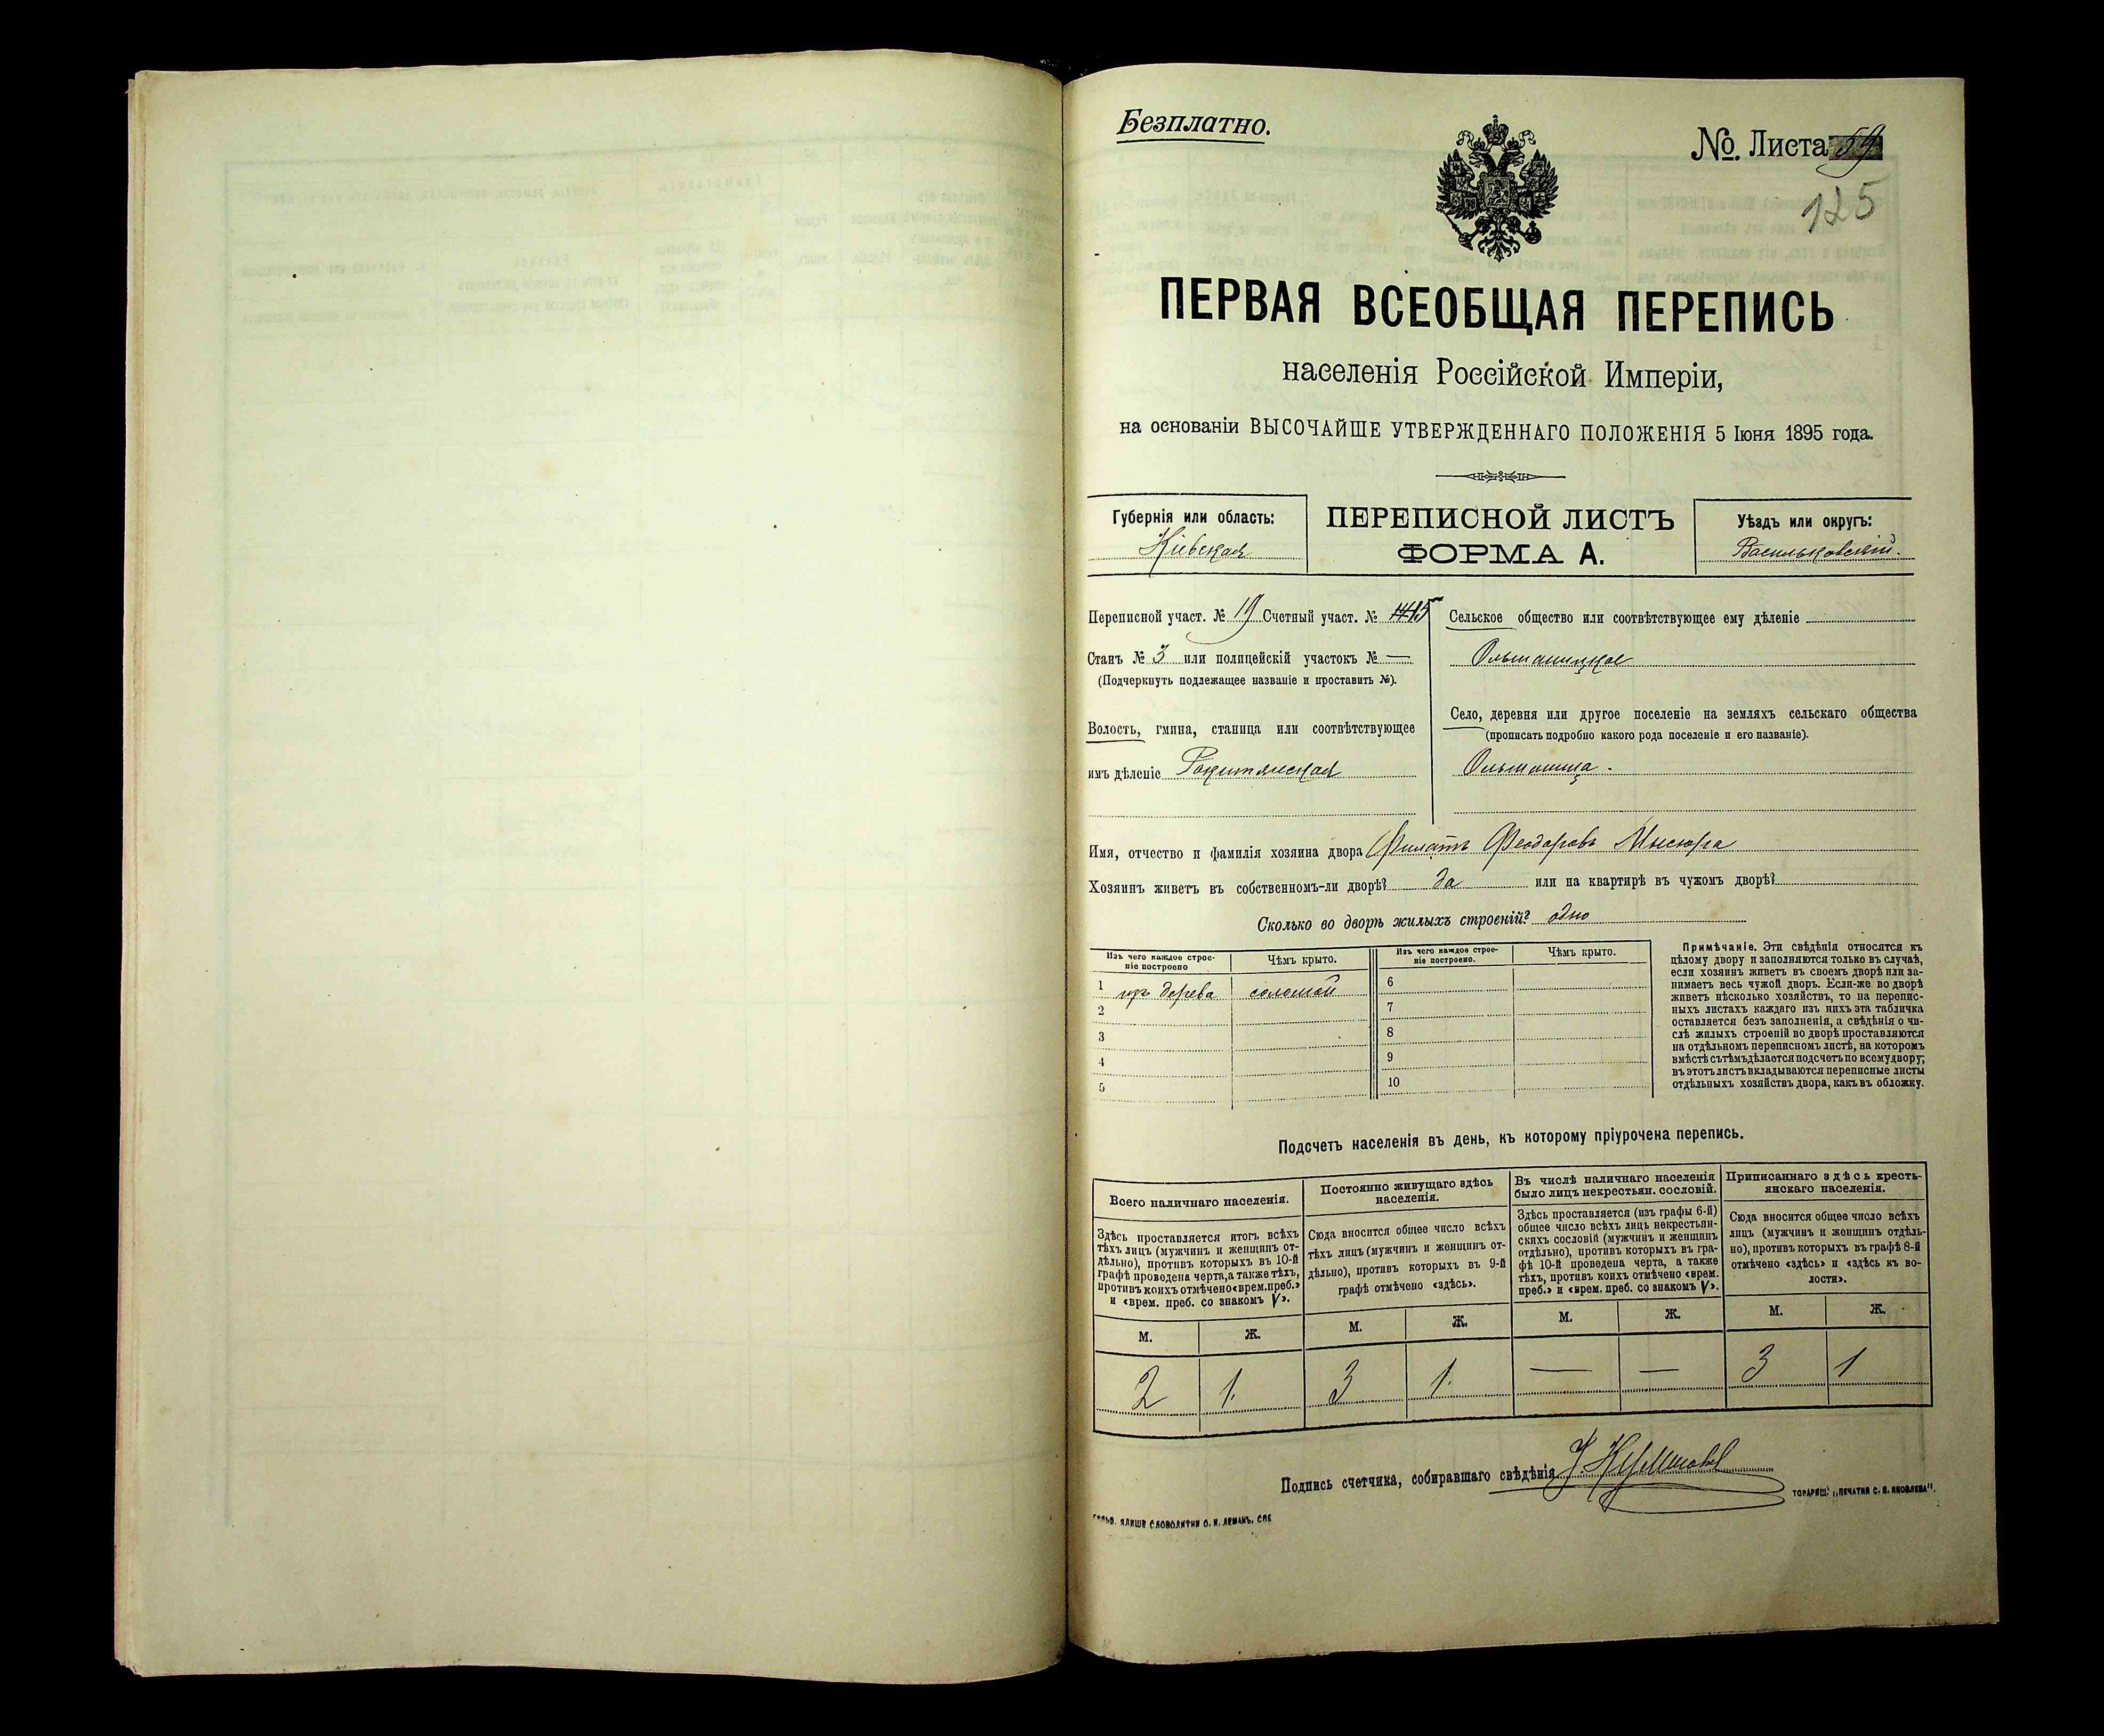 Безплатно.
№. Листа 59
125
ПЕРВАЯ ВСЕОБЩАЯ ПЕРЕПИСЬ
населенія Россійской Имперіи,
на основаніи ВЫСОЧАЙШЕ УТВЕРЖДЕННАГО ПОЛОЖЕНІЯ 5 Іюня 1895 года.
Губернія или область:
Кіевская
ПЕРЕПИСНОЙ ЛИСТЪ
ФОРМА А.
Уѣздъ или округъ:
Васильковскій.
Переписной участ. № 19 Счетный участ. № 15
Станъ № 3 или полицейскій участокъ № —
(Подчеркнуть подлежащее названіе и проставить №).
Волость, гмина, станица или соотвѣтствующее
имъ дѣленіе Рокитянская
Сельское общество или соотвѣтствующее ему дѣленіе
Ольшаницкое
Село, деревня или другое поселеніе на земляхъ сельскаго общества
(прописать подробно какого рода поселеніе и его названіе).
Ольшаница.
Имя, отчество и фамилія хозяина двора Филатъ Феодоровъ Мисюра
Хозяинъ живетъ въ собственномъ-ли дворѣ? да или на квартирѣ въ чужомъ дворѣ?
Сколько во дворѣ жилыхъ строеній? одно
Изъ чего каждое строе-
ніе построено
Чѣмъ крыто.
1 изъ дерева соломой
2
3
4
5
Изъ чего каждое строе-
ніе построено.
Чѣмъ крыто.
6
7
8
9
10
Примѣчаніе. Эти свѣдѣнія относятся къ
цѣлому двору и заполняются только въ случаѣ,
если хозяинъ живетъ въ своемъ дворѣ или за-
нимаетъ весь чужой дворъ. Если-же во дворѣ
живетъ нѣсколько хозяйствъ, то на перепис-
ныхъ листахъ каждаго изъ нихъ эта табличка
оставляется безъ заполненія, а свѣдѣнія о чи-
слѣ жилыхъ строеній во дворѣ проставляются
на отдѣльномъ переписномъ листѣ, на которомъ
вмѣстѣ съ тѣмъ дѣлается подсчетъ по всему двору;
въ этотъ листъ вкладываются переписные листы
отдѣльныхъ хозяйствъ двора, какъ въ обложку.
Подсчетъ населенія въ день, къ которому пріурочена перепись.
Всего наличнаго населенія.
Здѣсь проставляется итогъ всѣхъ
тѣхъ лицъ (мужчинъ и женщинъ от-
дѣльно), противъ которыхъ въ 10-й
графѣ проведена черта, а также тѣхъ,
противъ коихъ отмѣчено «врем. преб.»
и «врем. преб. со знакомъ V».
М. Ж.
2 1.
Постоянно живущаго здѣсь
населенія.
Сюда вносится общее число всѣхъ
тѣхъ лицъ (мужчинъ и женщинъ от-
дѣльно), противъ которыхъ въ 9-й
графѣ отмѣчено «здѣсь».
М. Ж.
3 1.
Въ числѣ наличнаго населенія
было лицъ некрестьян. сословій.
Здѣсь проставляется (изъ графы 6-й)
общее число всѣхъ лицъ некрестьян-
скихъ сословій (мужчинъ и женщинъ
отдѣльно), противъ которыхъ въ гра-
фѣ 10-й проведена черта, а также
тѣхъ, противъ коихъ отмѣчено «врем.
преб.» и «врем. преб. со знакомъ V».
М. Ж.
— —
Приписаннаго здѣсь кресть-
янскаго населенія.
Сюда вносится общее число всѣхъ
лицъ (мужчинъ и женщинъ отдѣль-
но), противъ которыхъ въ графѣ 8-й
отмѣчено «здѣсь» и «здѣсь къ во-
лости».
М. Ж.
3 1
Подпись счетчика, собиравшаго свѣдѣнія
СЛОВОЛИТНИ О. И. ЛЕМАНЪ, СПБ
ТОВАРИЩ. „ПЕЧАТНЯ С. П. ЯКОВЛЕВА".